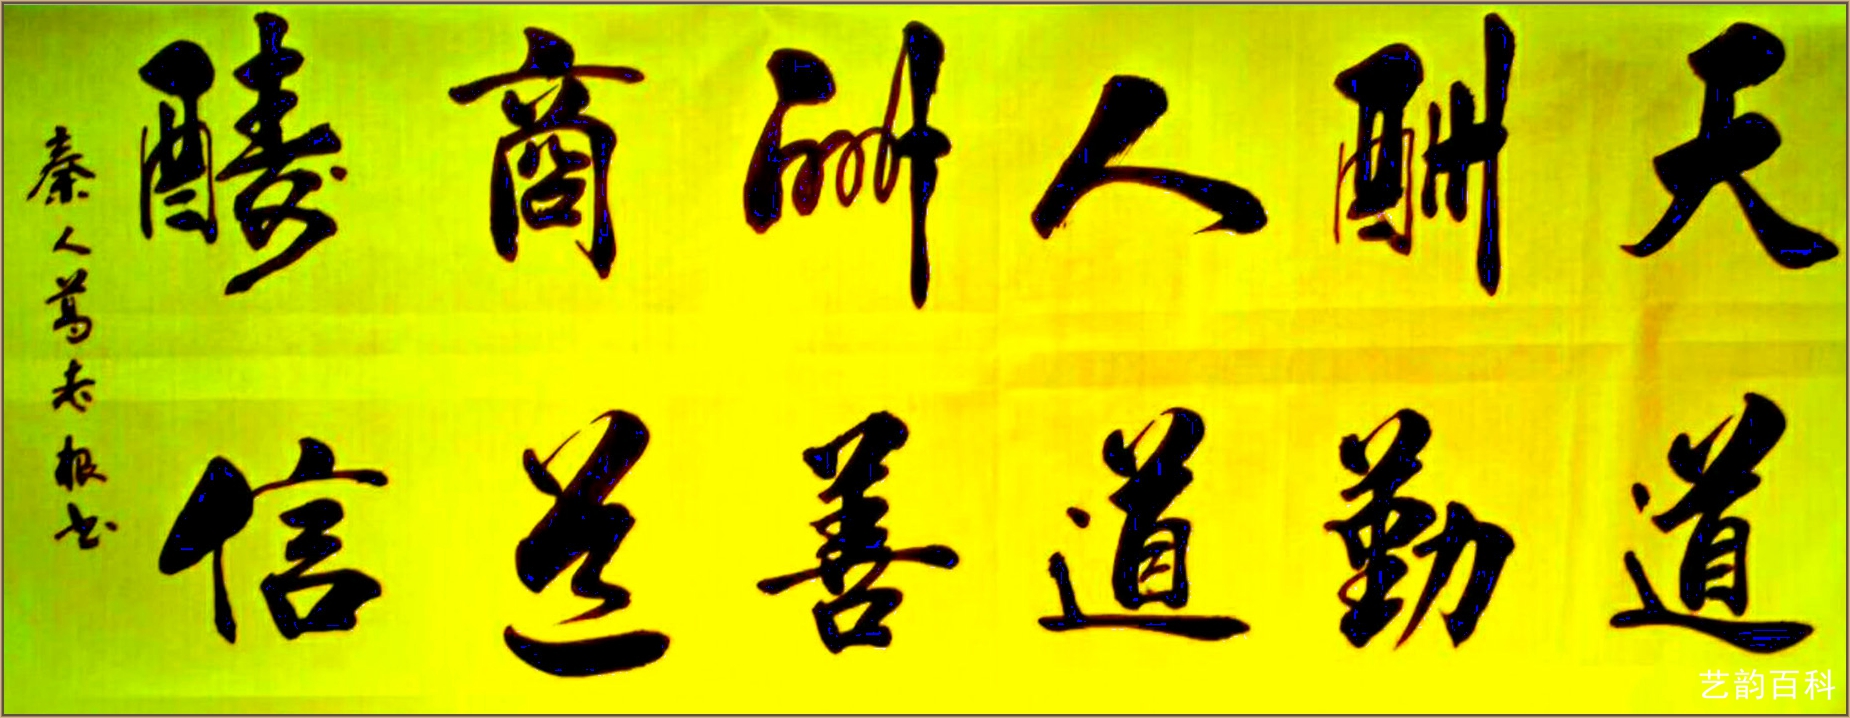 天道
酬勤
人道
酬善
商道
醻信
秦人葛老根书
艺韵百科